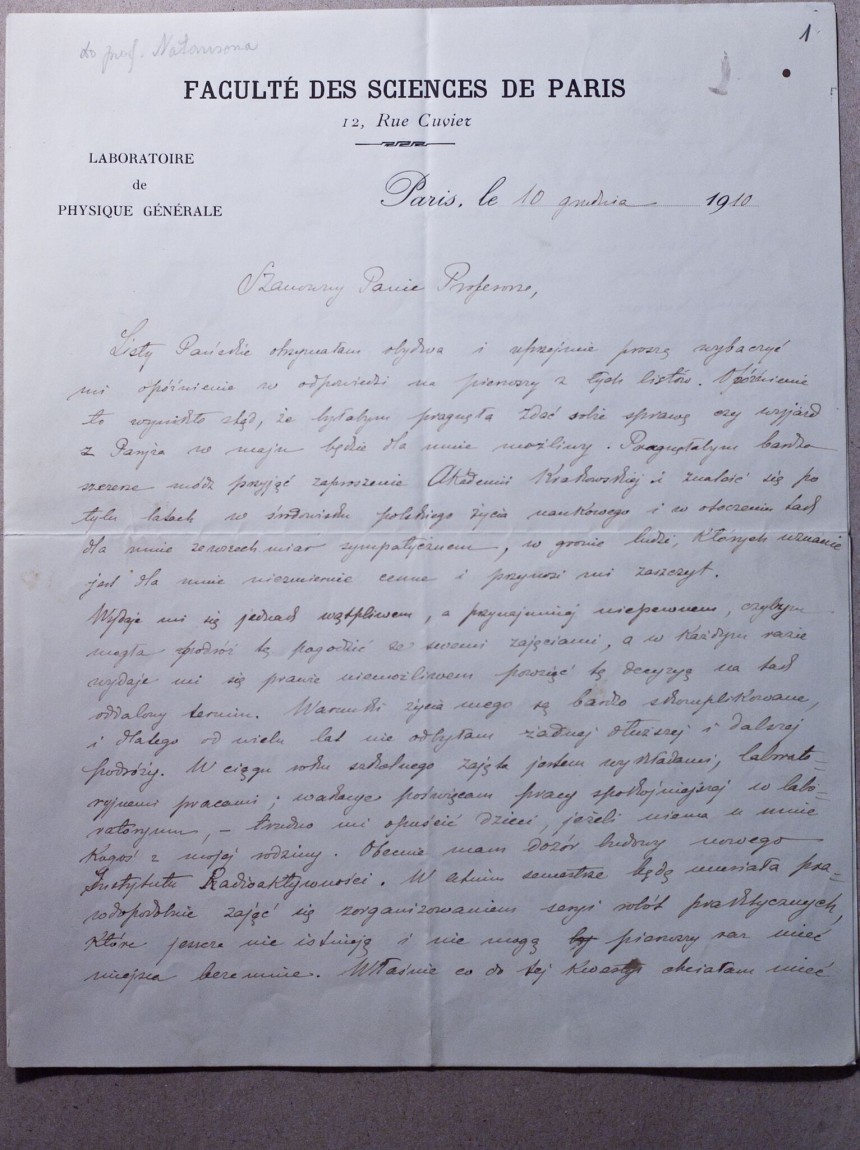 do prof. Natansona
1
FACULTÉ DES SCIENCES DE PARIS
12, Rue Cuvier
LABORATOIRE
de
PHYSIQUE GÉNÉRALE
Paris, le 10 grudnia 1910
Szanowny Panie Profesorze,
Listy Pańskie otrzymałam obydwa i uprzejmie proszę wybaczyć
mi opóźnienie w odpowiedzi na pierwszy z tych listów. Opóźnienie
to wynikło stąd, że byłabym pragnęła zdać sobie sprawę czy wyjazd
z Paryża w maju będzie dla mnie możliwy. Pragnęłabym bardzo
szczerze módz przyjąć zaproszenie Akademii Krakowskiej i znaleść się po
tylu latach w środowisku polskiego życia naukowego i w otoczeniu tak
dla mnie ze wszech miar sympatycznem, w gronie ludzi, których uznanie
jest dla mnie niezmiernie cenne i przynosi mi zaszczyt.
Wydaje mi się jednak wątpliwem, a przynajmniej niepewnem, czybym
mogła podróż tę pogodzić ze swemi zajęciami, a w każdym razie
wydaje mi się prawie niemożliwem powziąć tę decyzyę na tak
oddalony termin. Warunki życia mego są bardzo skomplikowane,
i dlatego od wielu lat nie odbyłam żadnej dłuższej i dalszej
podróży. W ciągu roku szkolnego zajęta jestem wykładami, laborato-
ryjnemi pracami; wakacye poświęcam pracy spokojniejszej w labo-
ratoryum, – trudno mi opuścić dzieci, jeżeli niema u mnie
kogoś z mojej rodziny. Obecnie mam dozór budowy nowego
Instytutu Radioaktywności. W letnim semestrze będę musiała pra-
wdopodobnie zająć się zorganizowaniem seryi robót praktycznych,
które jeszcze nie istnieją i nie mogą by pierwszy raz mieć
miejsca bezemnie. Właśnie co do tej kwestyi chciałam mieć